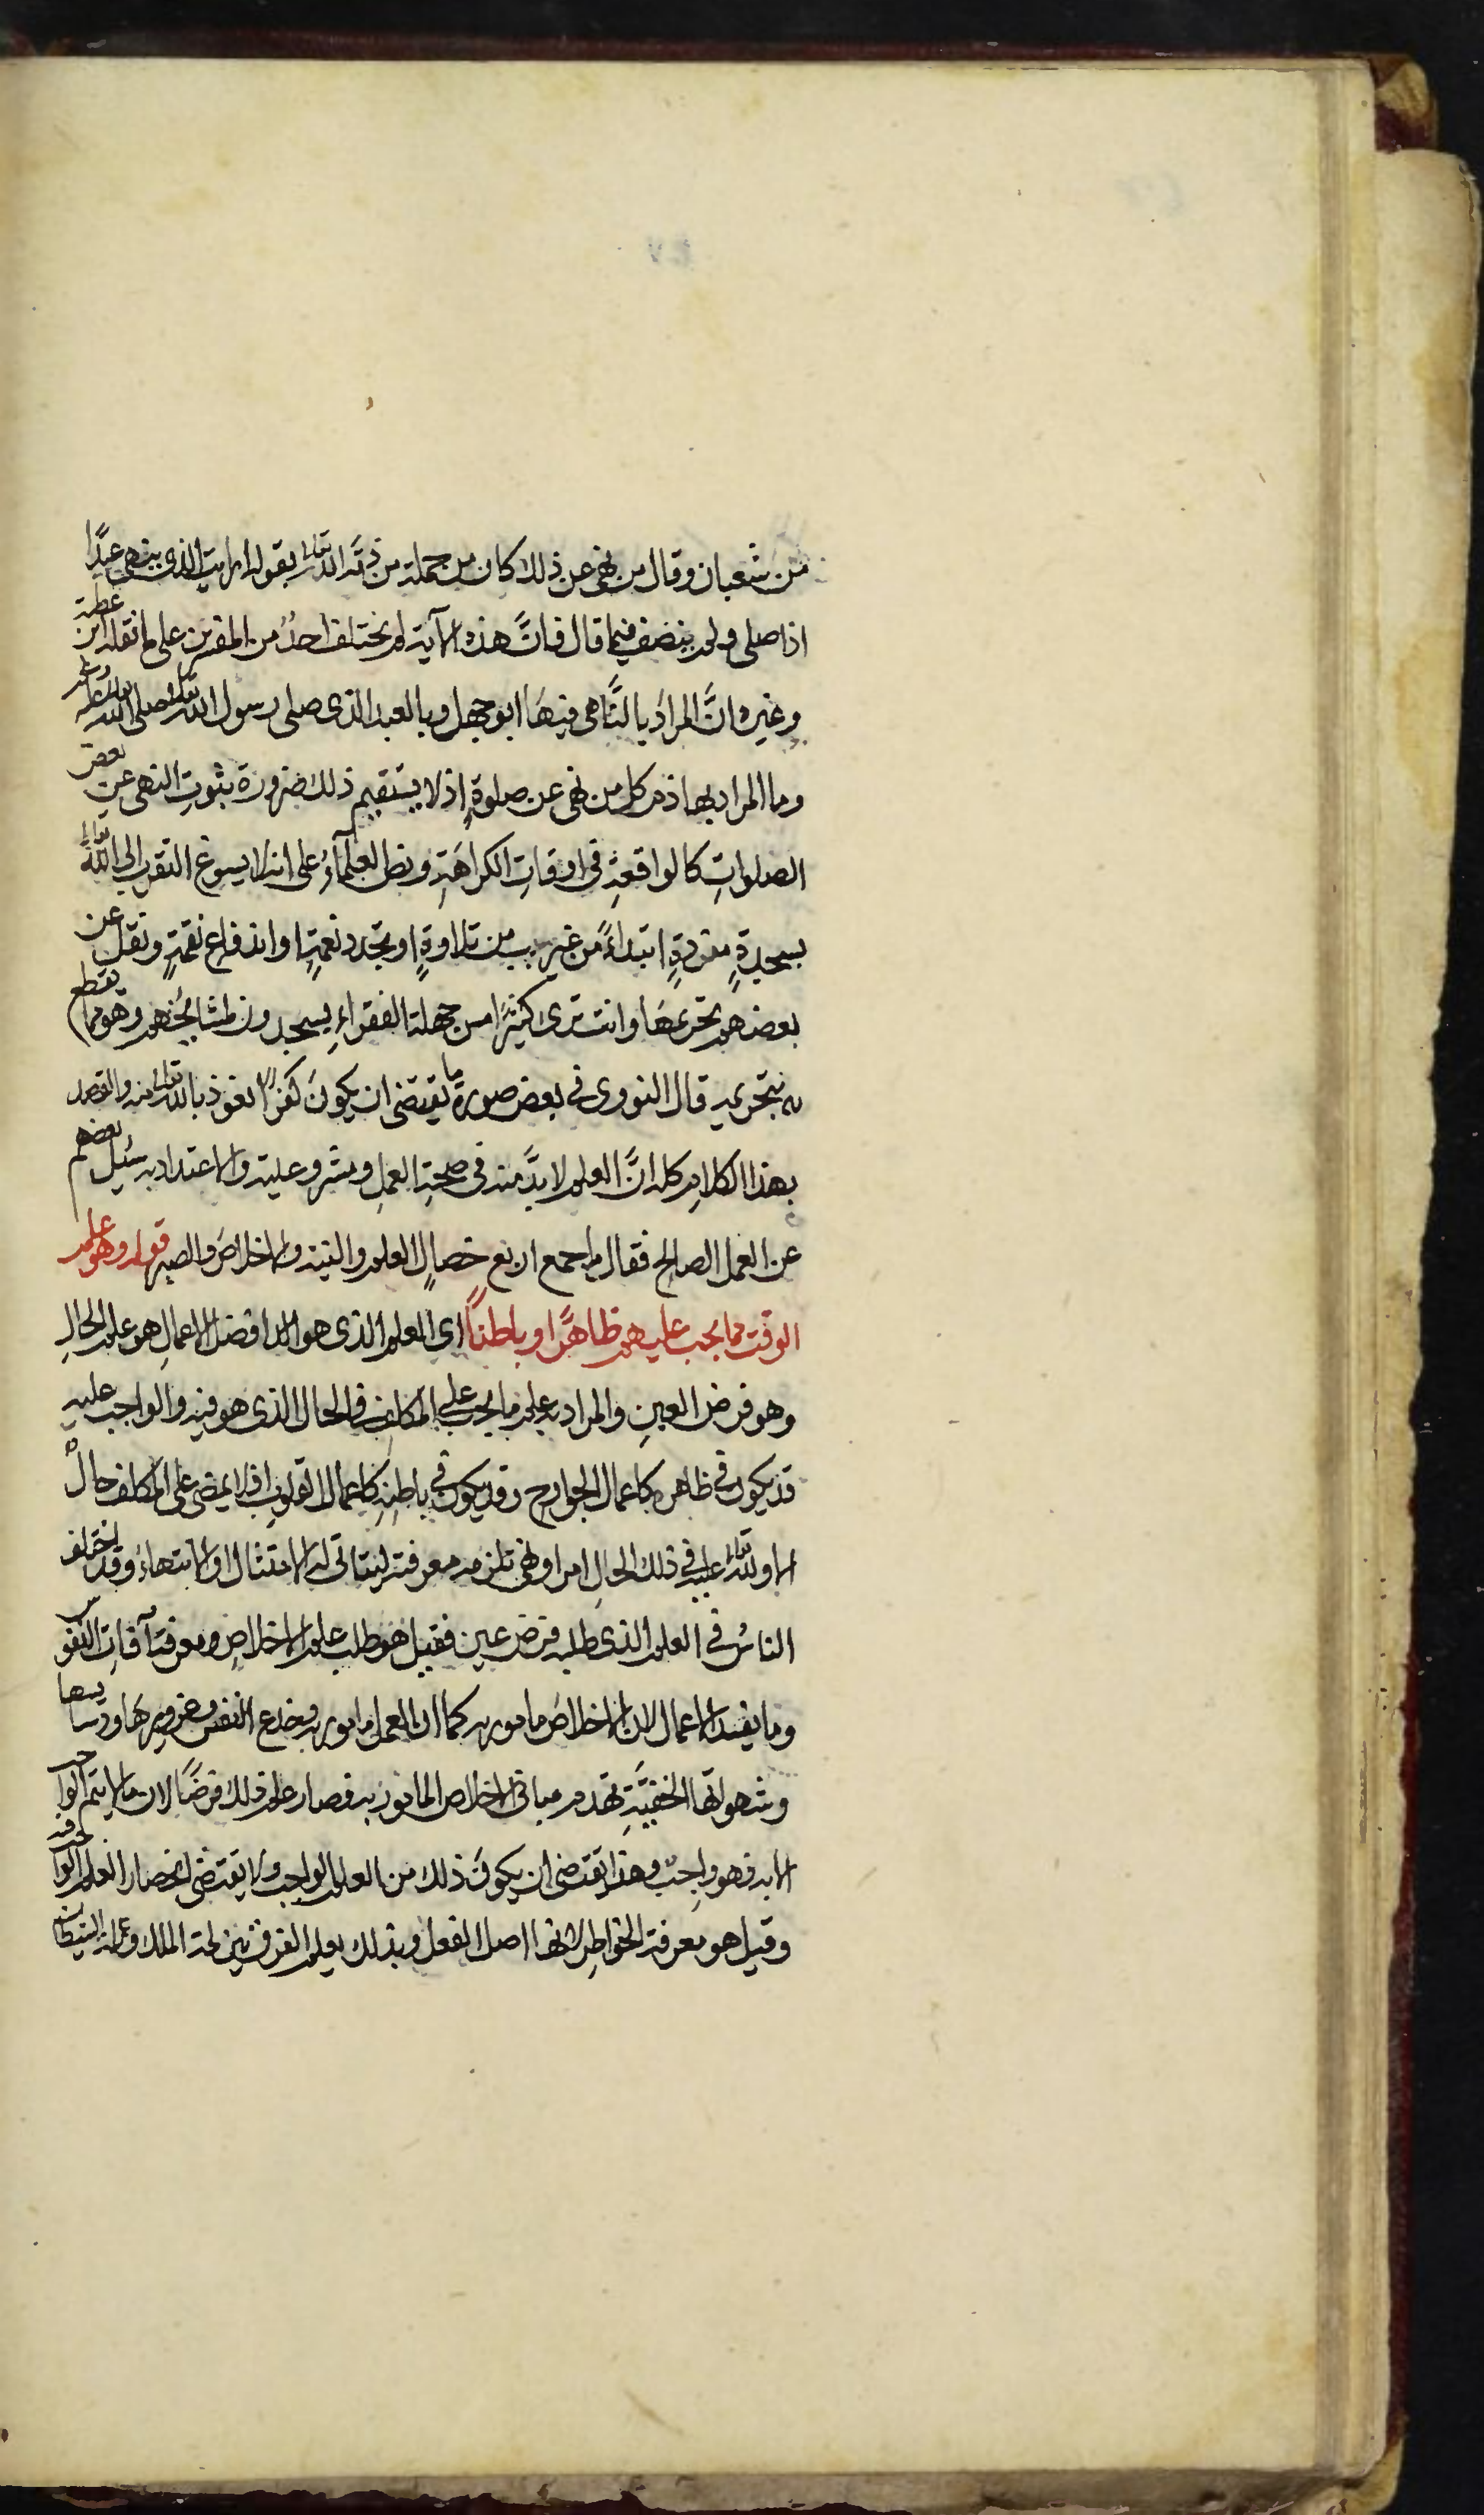 من شعبان وقال من نهى عن ذلك كان من جملة من ذمّه الله تعالى بقوله ارايت الذى ينهى عبدًا
اذا صلى ولم ينصف فيما قال فانَّ هذه الآية لم يختلف احدٌ من المفسرين على ما نقله ابن عطية
وغيره انَّ المرادَ بالنَّاهى فيهَا ابو جهل وبالعبد الذى صلى رسول الله صلى الله تعالى عليه وسلم
وما المراد بها ذم كل من نهى عن صلوةٍ اذ لا يستقيم ذلك ضرورة بثبوتِ النهى عن بعض
الصلواتِ كالواقعةِ فى اوقاتِ الكراهَةِ ونص العلمآءُ على انه لا يسوغ التقرب الى الله تعالى
بسجدةٍ مفردةٍ ابتداءً من غير سبب من تلاوةٍ او تجدد نعمةٍ او اندفاع نقمةٍ ونقل عن
بعضهم تحريمهَا وانت ترى كثيرًا من جهلة الفقراءِ يسجدون لمشايخهم وهو مما يقطع
بتحريمه قال النووى فى بعض صوره ما يقتضى ان يكونَ كفرًا نعوذ بالله تعالى منه والقصد
بهذا الكلام كله انَّ العلم لا بدَّ منه فى صحةِ العملِ ومشروعيته والاعتداد به سُئِل بعضهم
عن العمل الصالح فقال ما جمع اربع خصالٍ العلم والنية والاخلاصَ والصبر قوله وهو علم
الوقت مما يجب عليهم ظاهرًا وباطنًا اى العلم الذى هو افضل الاعمالِ هو علم الحالِ
وهو فرض العينِ والمراد به علم ما يجب على المكلف فى الحال الذى هو فيه والواجب عليه
قد يكون فى ظاهره كاعمال الجوارح وقد يكون فى باطنِهِ كاعمال القلوبِ اذ لا يمضى على المكلف حالٌ
الا ولله تعالى عليه فى ذلك الحالِ امر او نهى تلزمه معرفته ليتاتى له الامتثال او الانتهاءُ وقد اختلف
الناسُ فى العلم الذى طلبه فرض عين فقيل هو طلب علم الاخلاصِ ومعرفة آفاتِ النفوس
وما يفسد الاعمال لان الاخلاصَ مامور به كما ان العمل مامور به وخدع النفس وغرورهَا ودسايسها
وشهواتها الخفيَّةِ تهدم مبانى الاخلاص المامور به فصار علم ذلك فرضًا لان ما لا يتم الواجب
الا به فهو واجبٌ وهذا يقتضى ان يكونَ ذلك من العلم الواجب ولا يقتضى انحصار العلم الواجب فيه
وقيل هو معرفة الخواطرِ لانها اصل الفعل وبذلك يعلم الفرق بين لمة الملك ولمة الشيطان